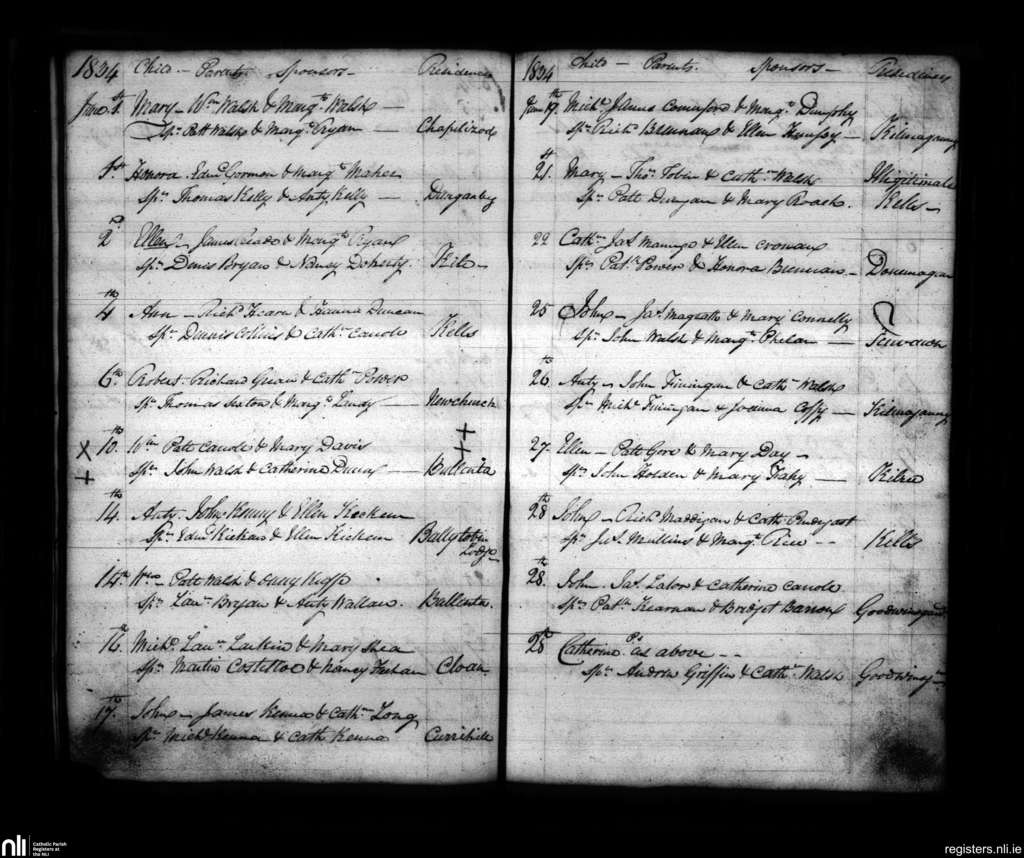 1834 Child - Parents - Sponsors - Residence
June 1st Mary - Wm Walsh & Margt Walsh -
Spr Patt Walsh & Margt Ryan - Chapelizod
1st Honora Edmd Gorman & Margt Maher
Spr Thomas Kelly & Anty Kelly - Dungarby
2d Ellen - James & Margt Ryan
Spr Denis Bryan & Nancy Doherty. Kiln -
4th Ann - Richd Hearn & Hanna Duncan
Spr Dennis Collins & Cathn Carroll Kells
6th Robert Richard Green & Cathn Power
Spr Thomas Seaton & Margt Landy - Newchurch
X 10th Wm Patt Carroll & Mary Davis +
+ Spr John Walsh & Catherine Dunn - Ballinta +
14th Anty John Kenny & Ellen
Spr Edmd & Ellen Ballytobin
Lodge
14th Wm - Patt Walsh &
Spr Laun Bryan & Anty Wallace. Ballinta.
16th Michl Laun Larkin & Mary Shea
Spr Martin Costelloe & Nancy Cloan
17th John - James Kenna & Cathn Long
Spr Michl Kenna & Cath Kenna Currihill
1834 Child - Parents. Sponsors - Residence
June 19. Michl James Comerford & Margt Dunphy
Spr Richd Brennan & Ellen - Kilmaganny
21st Mary - Thos Tobin & Cathn Walsh Illigitimate
Spr Patt Duncan & Mary Roach. Kells -
22 Cathn Jas & Ellen Cronan
Spr Patk Power & Honora Brennan - Dunnmagan
25 John - Jas Magrath & Mary Connelly
Spr John Walsh & Margt Phelan -
26th Anty - John Finnigan & Cathn Walsh
Spr Michl Finnigan & Joanna Coffy - Kilmaganny
27. Ellen - Patt Gore & Mary Day -
Spr John Holden & Mary Fahy - Kilree
28th John - Richd Maddigan & Cath Pendergast
Spr Jas Mullins & Margt Rice - - Kells
28th John. Jas Lalor & Catherine Carroll
Spr Patk Kearnan & Bridget Barron Goodwinsgarden
28th Catherine Ps as above - -
Spr Andrew Griffin & Cathn Walsh Goodwinsgn
nli
Catholic Parish
Registers at
the NLI
registers.nli.ie